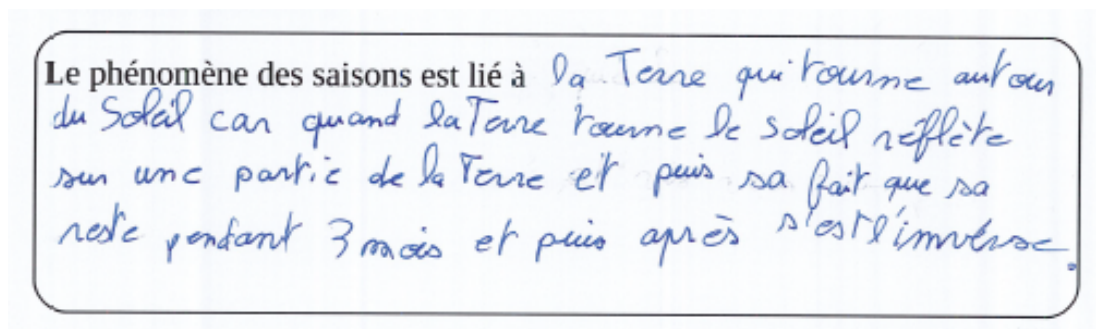 Le phénomène des saisons est lié à la Terre qui tourne autour
du Soleil car quand la Terre tourne le soleil réflète
sur une partie de la Terre et puis sa fait que sa
reste pendant 3 mois et puis après s'est l'inverse.